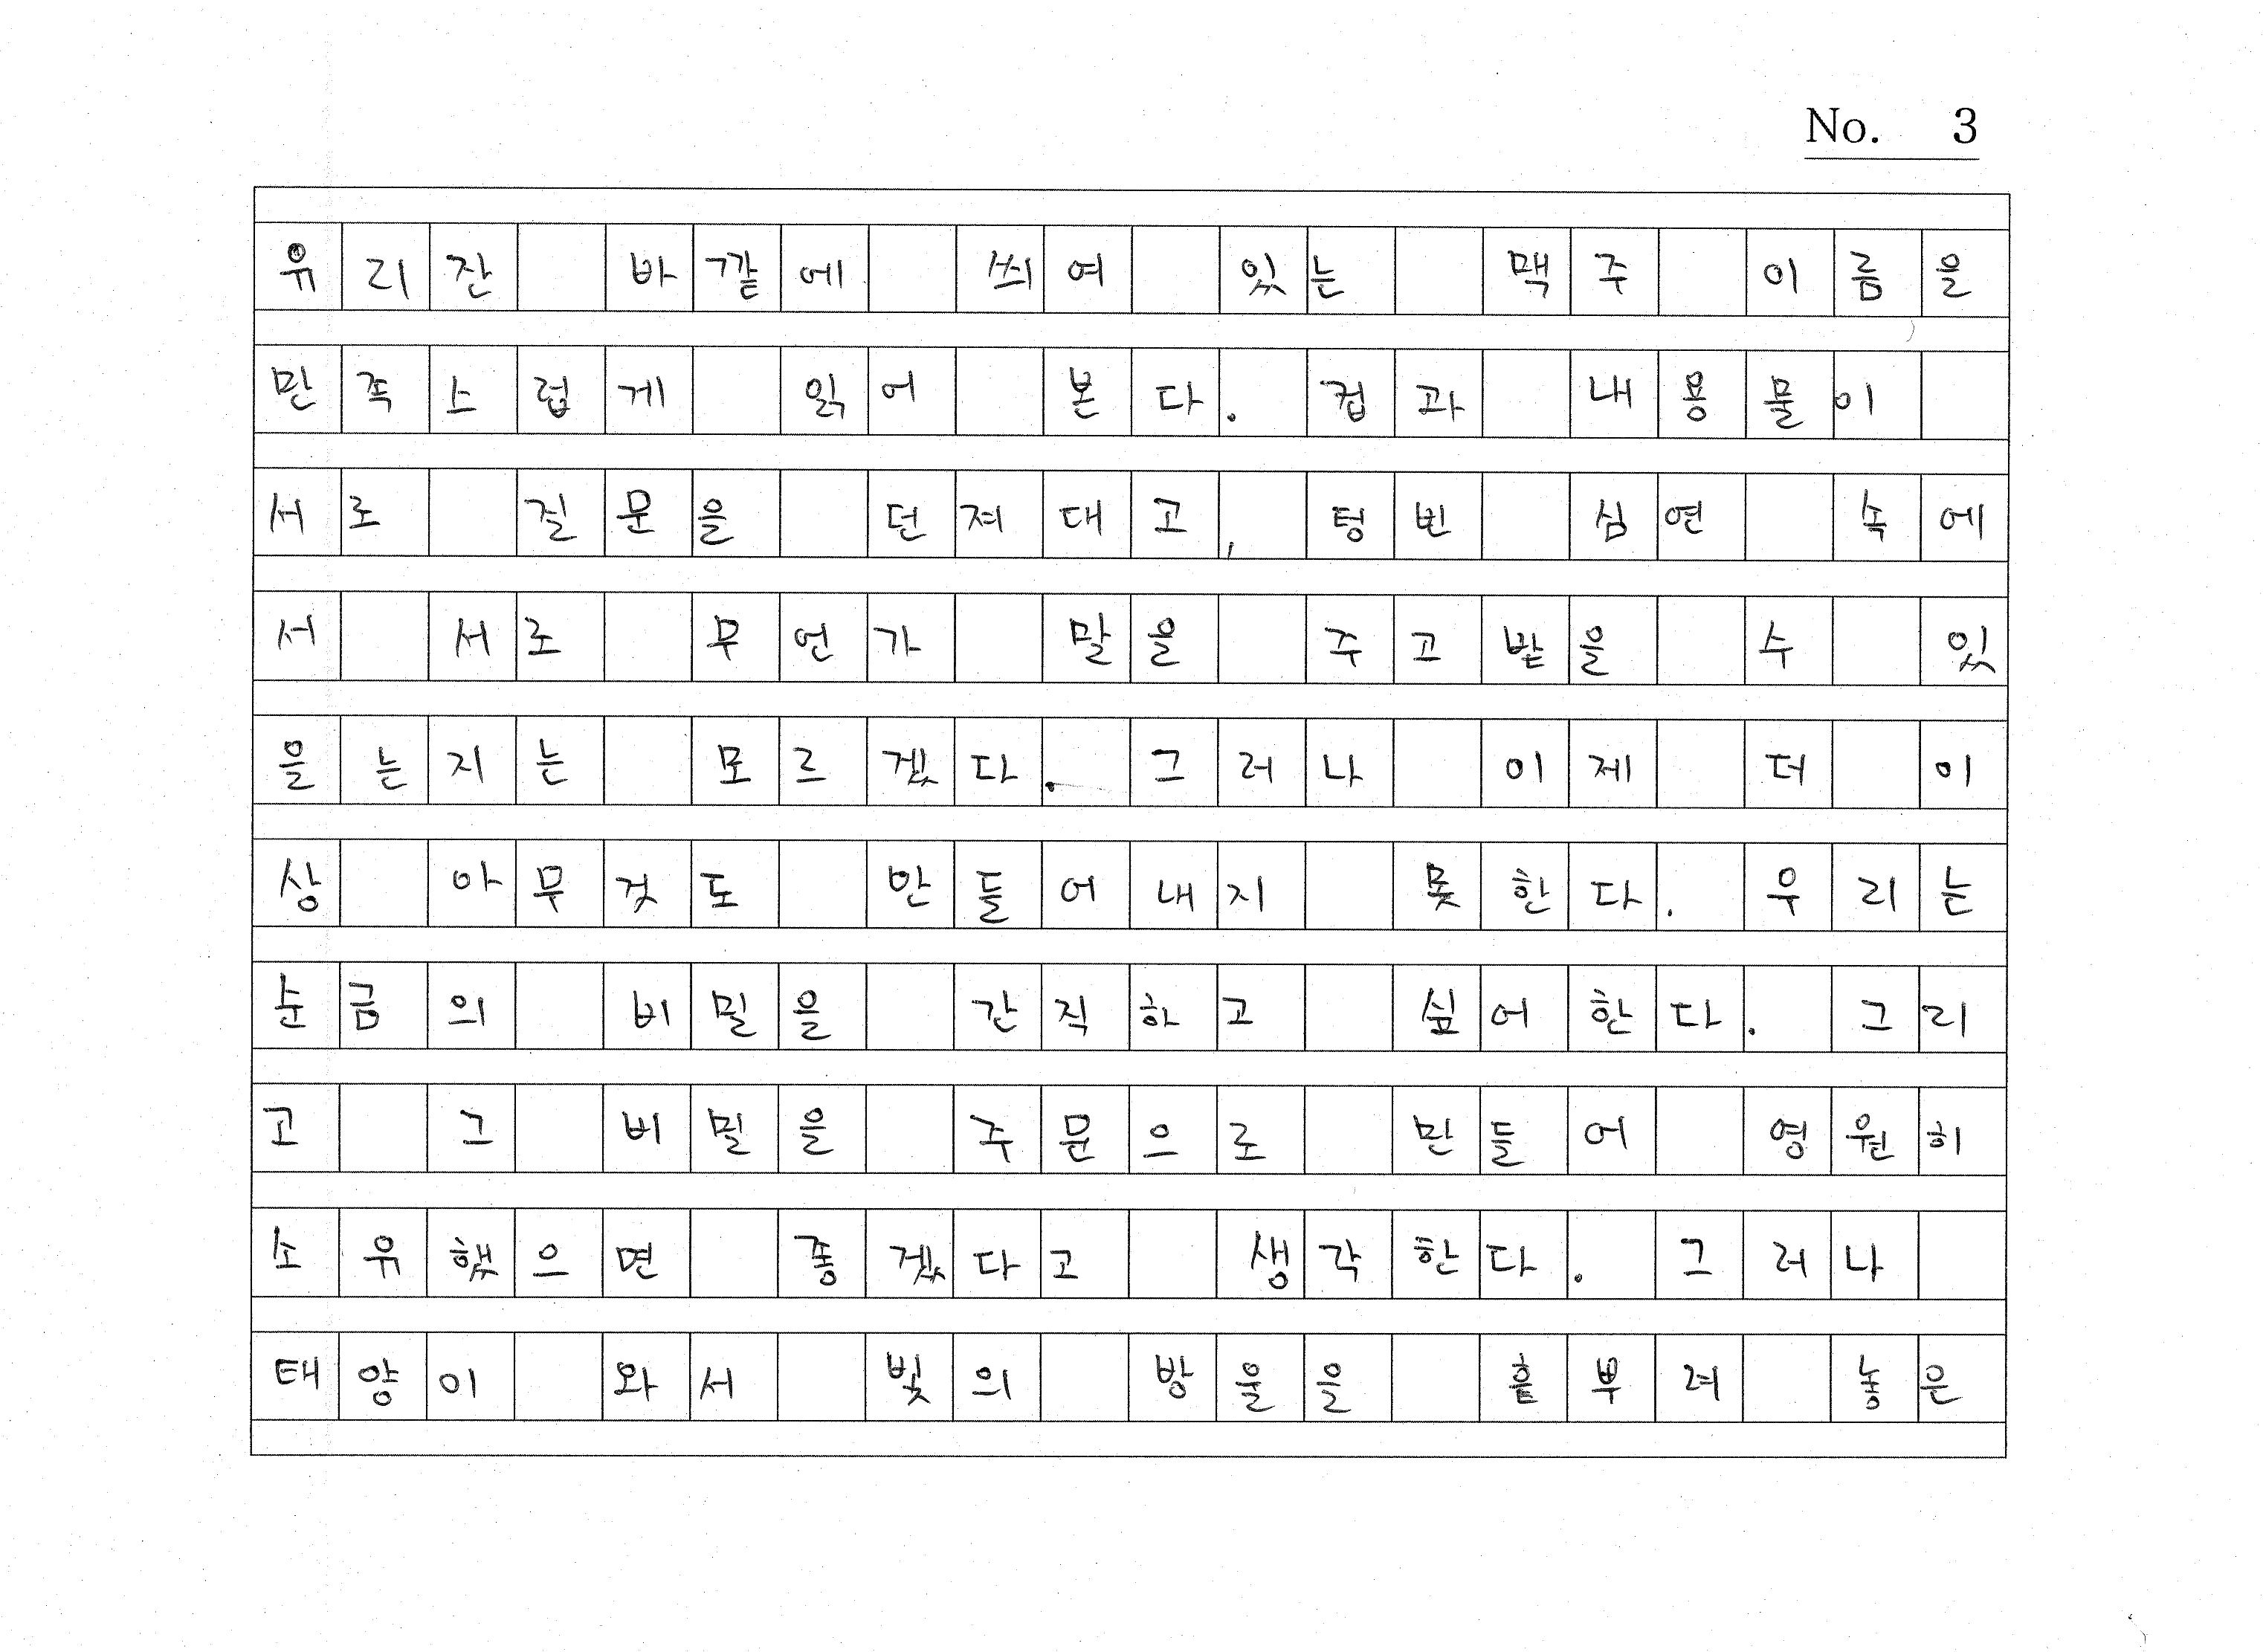 No. 3
유리잔 바깥에 씌여 있는 맥주 이름을
만족스럽게 읽어 본다. 컵과 내용물이
서로 질문을 던져대고, 텅빈 심연 속에
서 서로 무언가 말을 주고받을 수 있
을는지는 모르겠다. 그러나 이제 더 이
상 아무것도 만들어내지 못한다. 우리는
순금의 비밀을 간직하고 싶어한다. 그리
고 그 비밀을 주문으로 만들어 영원히
소유했으면 좋겠다고 생각한다. 그러나
태양이 와서 빛의 방울을 흩뿌려 놓은